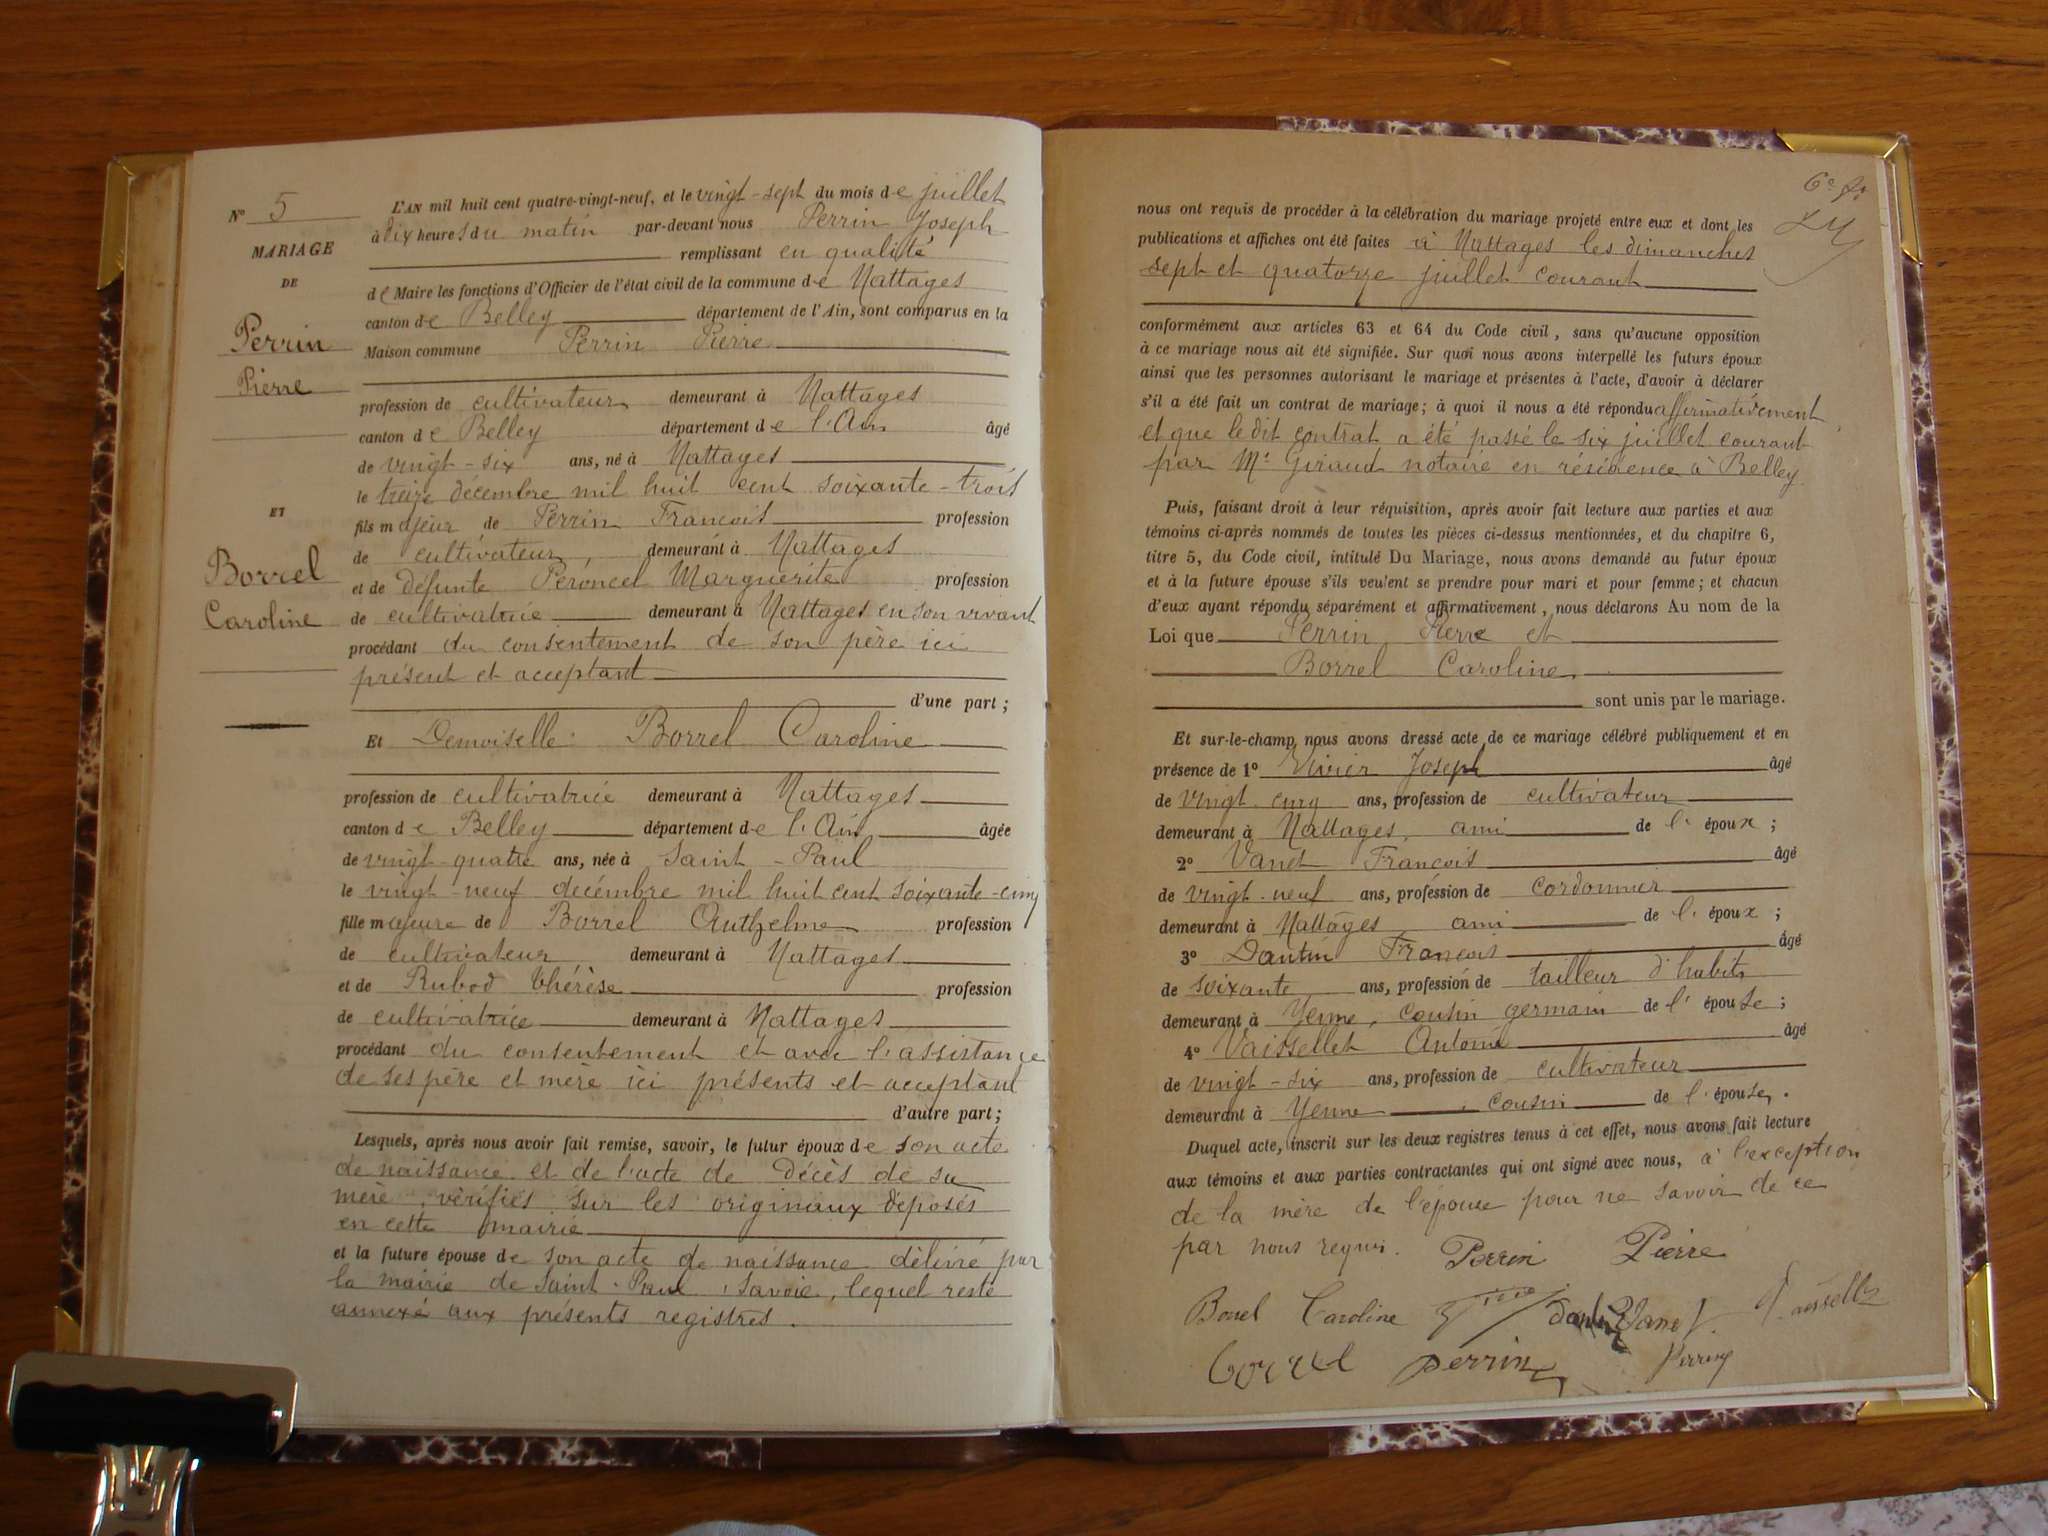 N° 5
MARIAGE
DE
Perrin
Pierre
ET
Borrel
Caroline
L'AN mil huit cent quatre-vingt-neuf, et le vingt-sept du mois de juillet
à dix heures du matin par-devant nous Perrin Joseph
remplissant en qualité
de Maire les fonctions d'Officier de l'état civil de la commune de Nattages
canton de Belley département de l'Ain, sont comparus en la
Maison commune Perrin Pierre
profession de cultivateur demeurant à Nattages
canton de Belley département de l'Ain âgé
de vingt-six ans, né à Nattages
le treize décembre mil huit cent soixante-trois
fils majeur de Perrin François profession
de cultivateur, demeurant à Nattages
et de défunte Peroncel Marguerite profession
de cultivatrice demeurant à Nattages en son vivant
procédant du consentement de son père ici
présent et acceptant
d'une part ;
Et Demoiselle Borrel Caroline
profession de cultivatrice demeurant à Nattages
canton de Belley département de l'Ain âgée
de vingt-quatre ans, née à Saint-Paul
le vingt-neuf décembre mil huit cent soixante-cinq
fille majeure de Borrel Anthelme profession
de cultivateur demeurant à Nattages
et de Rubod Thérèse profession
de cultivatrice demeurant à Nattages
procédant du consentement et avec l'assistance
de ses père et mère ici présents et acceptant
d'autre part ;
Lesquels, après nous avoir fait remise, savoir, le futur époux de son acte
de naissance et de l'acte de décès de sa
mère, vérifiés sur les originaux déposés
en cette mairie
et la future épouse de son acte de naissance délivré par
la mairie de Saint-Paul, Savoie, lequel reste
annexé aux présents registres.
nous ont requis de procéder à la célébration du mariage projeté entre eux et dont les
publications et affiches ont été faites à Nattages les dimanches
sept et quatorze juillet courant
conformément aux articles 63 et 64 du Code civil, sans qu'aucune opposition
à ce mariage nous ait été signifiée. Sur quoi nous avons interpellé les futurs époux
ainsi que les personnes autorisant le mariage et présentes à l'acte, d'avoir à déclarer
s'il a été fait un contrat de mariage ; à quoi il nous a été répondu affirmativement
et que le dit contrat a été passé le six juillet courant
par Me Giraud notaire en résidence à Belley.
Puis, faisant droit à leur réquisition, après avoir fait lecture aux parties et aux
témoins ci-après nommés de toutes les pièces ci-dessus mentionnées, et du chapitre 6,
titre 5, du Code civil, intitulé Du Mariage, nous avons demandé au futur époux
et à la future épouse s'ils veulent se prendre pour mari et pour femme ; et chacun
d'eux ayant répondu séparément et affirmativement, nous déclarons Au nom de la
Loi que Perrin Pierre et
Borrel Caroline
sont unis par le mariage.
Et sur-le-champ nous avons dressé acte de ce mariage célébré publiquement et en
présence de 1° Vivier Joseph âgé
de vingt cinq ans, profession de cultivateur
demeurant à Nattages, ami de l'époux ;
2° Vanet François âgé
de vingt-neuf ans, profession de cordonnier
demeurant à Nattages ami de l'époux ;
3° Dantin François âgé
de soixante ans, profession de tailleur d'habits
demeurant à Yenne, cousin germain de l'épouse ;
4° Vaissellet Antoine âgé
de vingt-six ans, profession de cultivateur
demeurant à Yenne, cousin de l'épouse.
Duquel acte, inscrit sur les deux registres tenus à cet effet, nous avons fait lecture
aux témoins et aux parties contractantes qui ont signé avec nous, à l'exception
de la mère de l'épouse pour ne savoir de ce
par nous requis. Perrin Pierre
Borrel Caroline Vanet
Borrel Perrin Perrin